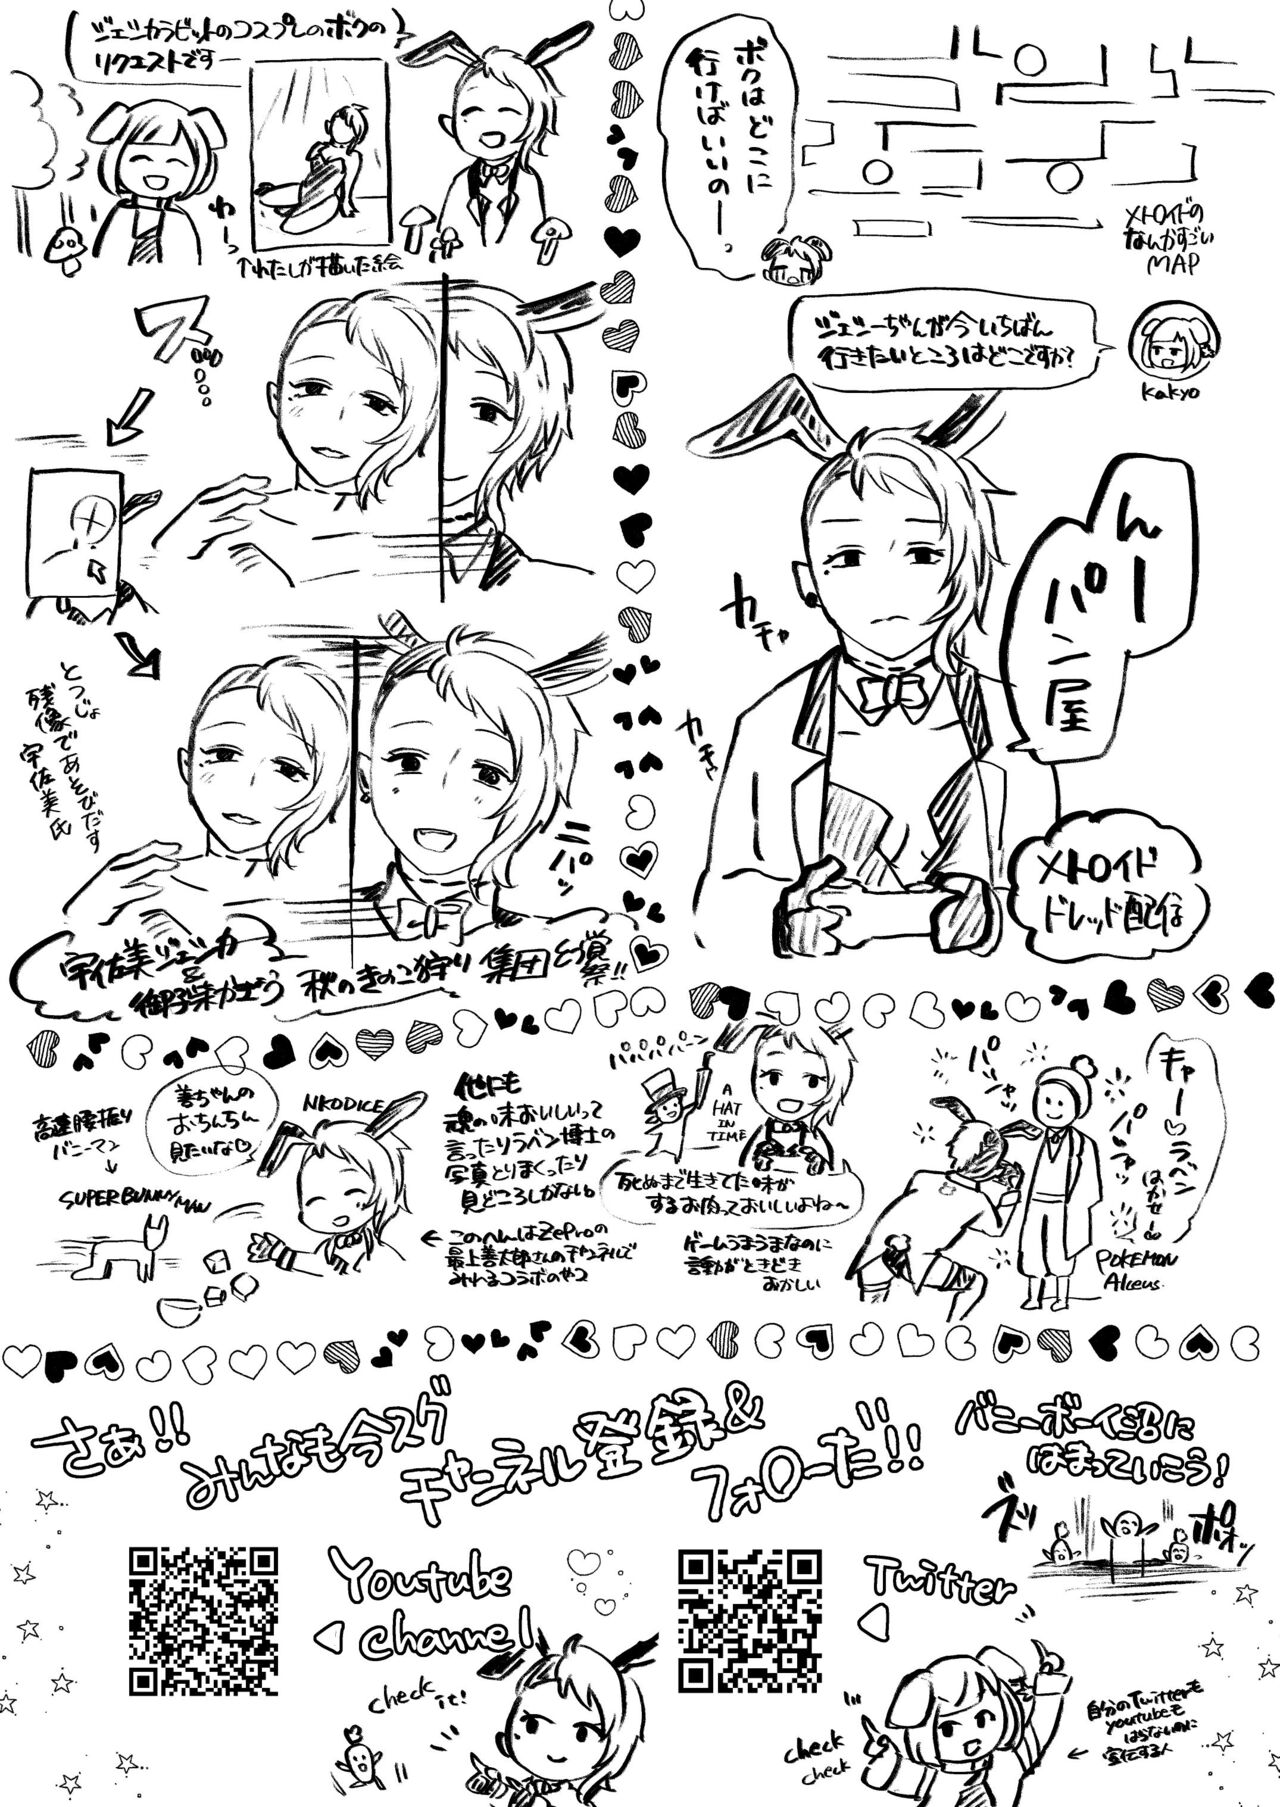 ボクはどこに
行けばいいのーっ
メトロイドの
なんかすごい
MAP
ジェシーちゃんが今いちばん
行きたいところはどこですか?
kakyo
んー
パン屋
カチャ
カチャ
メトロイド
ドレッド配信
ジェシカラビットのコスプレのボクの
リクエストですー
わーっ
↑わたしが描いた絵
ズ…
とつじょ
残像であそびだす
宇佐美氏
ニパッ
宇佐美ジェシカ
&
秋のきのこ狩り 集団幻覚
祭!!
キャー♡ラベン
はかせー
パシャッ
パシャッ
POKEMON
Alceus
パパパパーン
A
HAT
IN
TIME
死ぬまで生きてた味が
するお肉っておいしいよね~
ゲームうまうまなのに
言動がときどき
おかしい
他にも
魂の味おいしいって
言ったりラベン博士の
写真とりまくったり
見どころしかない。
←このへんはZeProの
最上善太郎さんのチャンネルで
みれるコラボのやつ
NKODICE
善ちゃんの
おちんちん
見たいな♡
高速腰振り
バニーマン
SUPER BUNNY MAN
さぁ!!
みんなも今スグ
チャンネル登録&
フォローだ!!
バニーボーイ沼に
はまっていこう!
ズッ
ポォッ
Youtube
channel
check
it!
Twitter
check
check
自分のTwitterも
youtubeも
はらないのに
宣伝する人